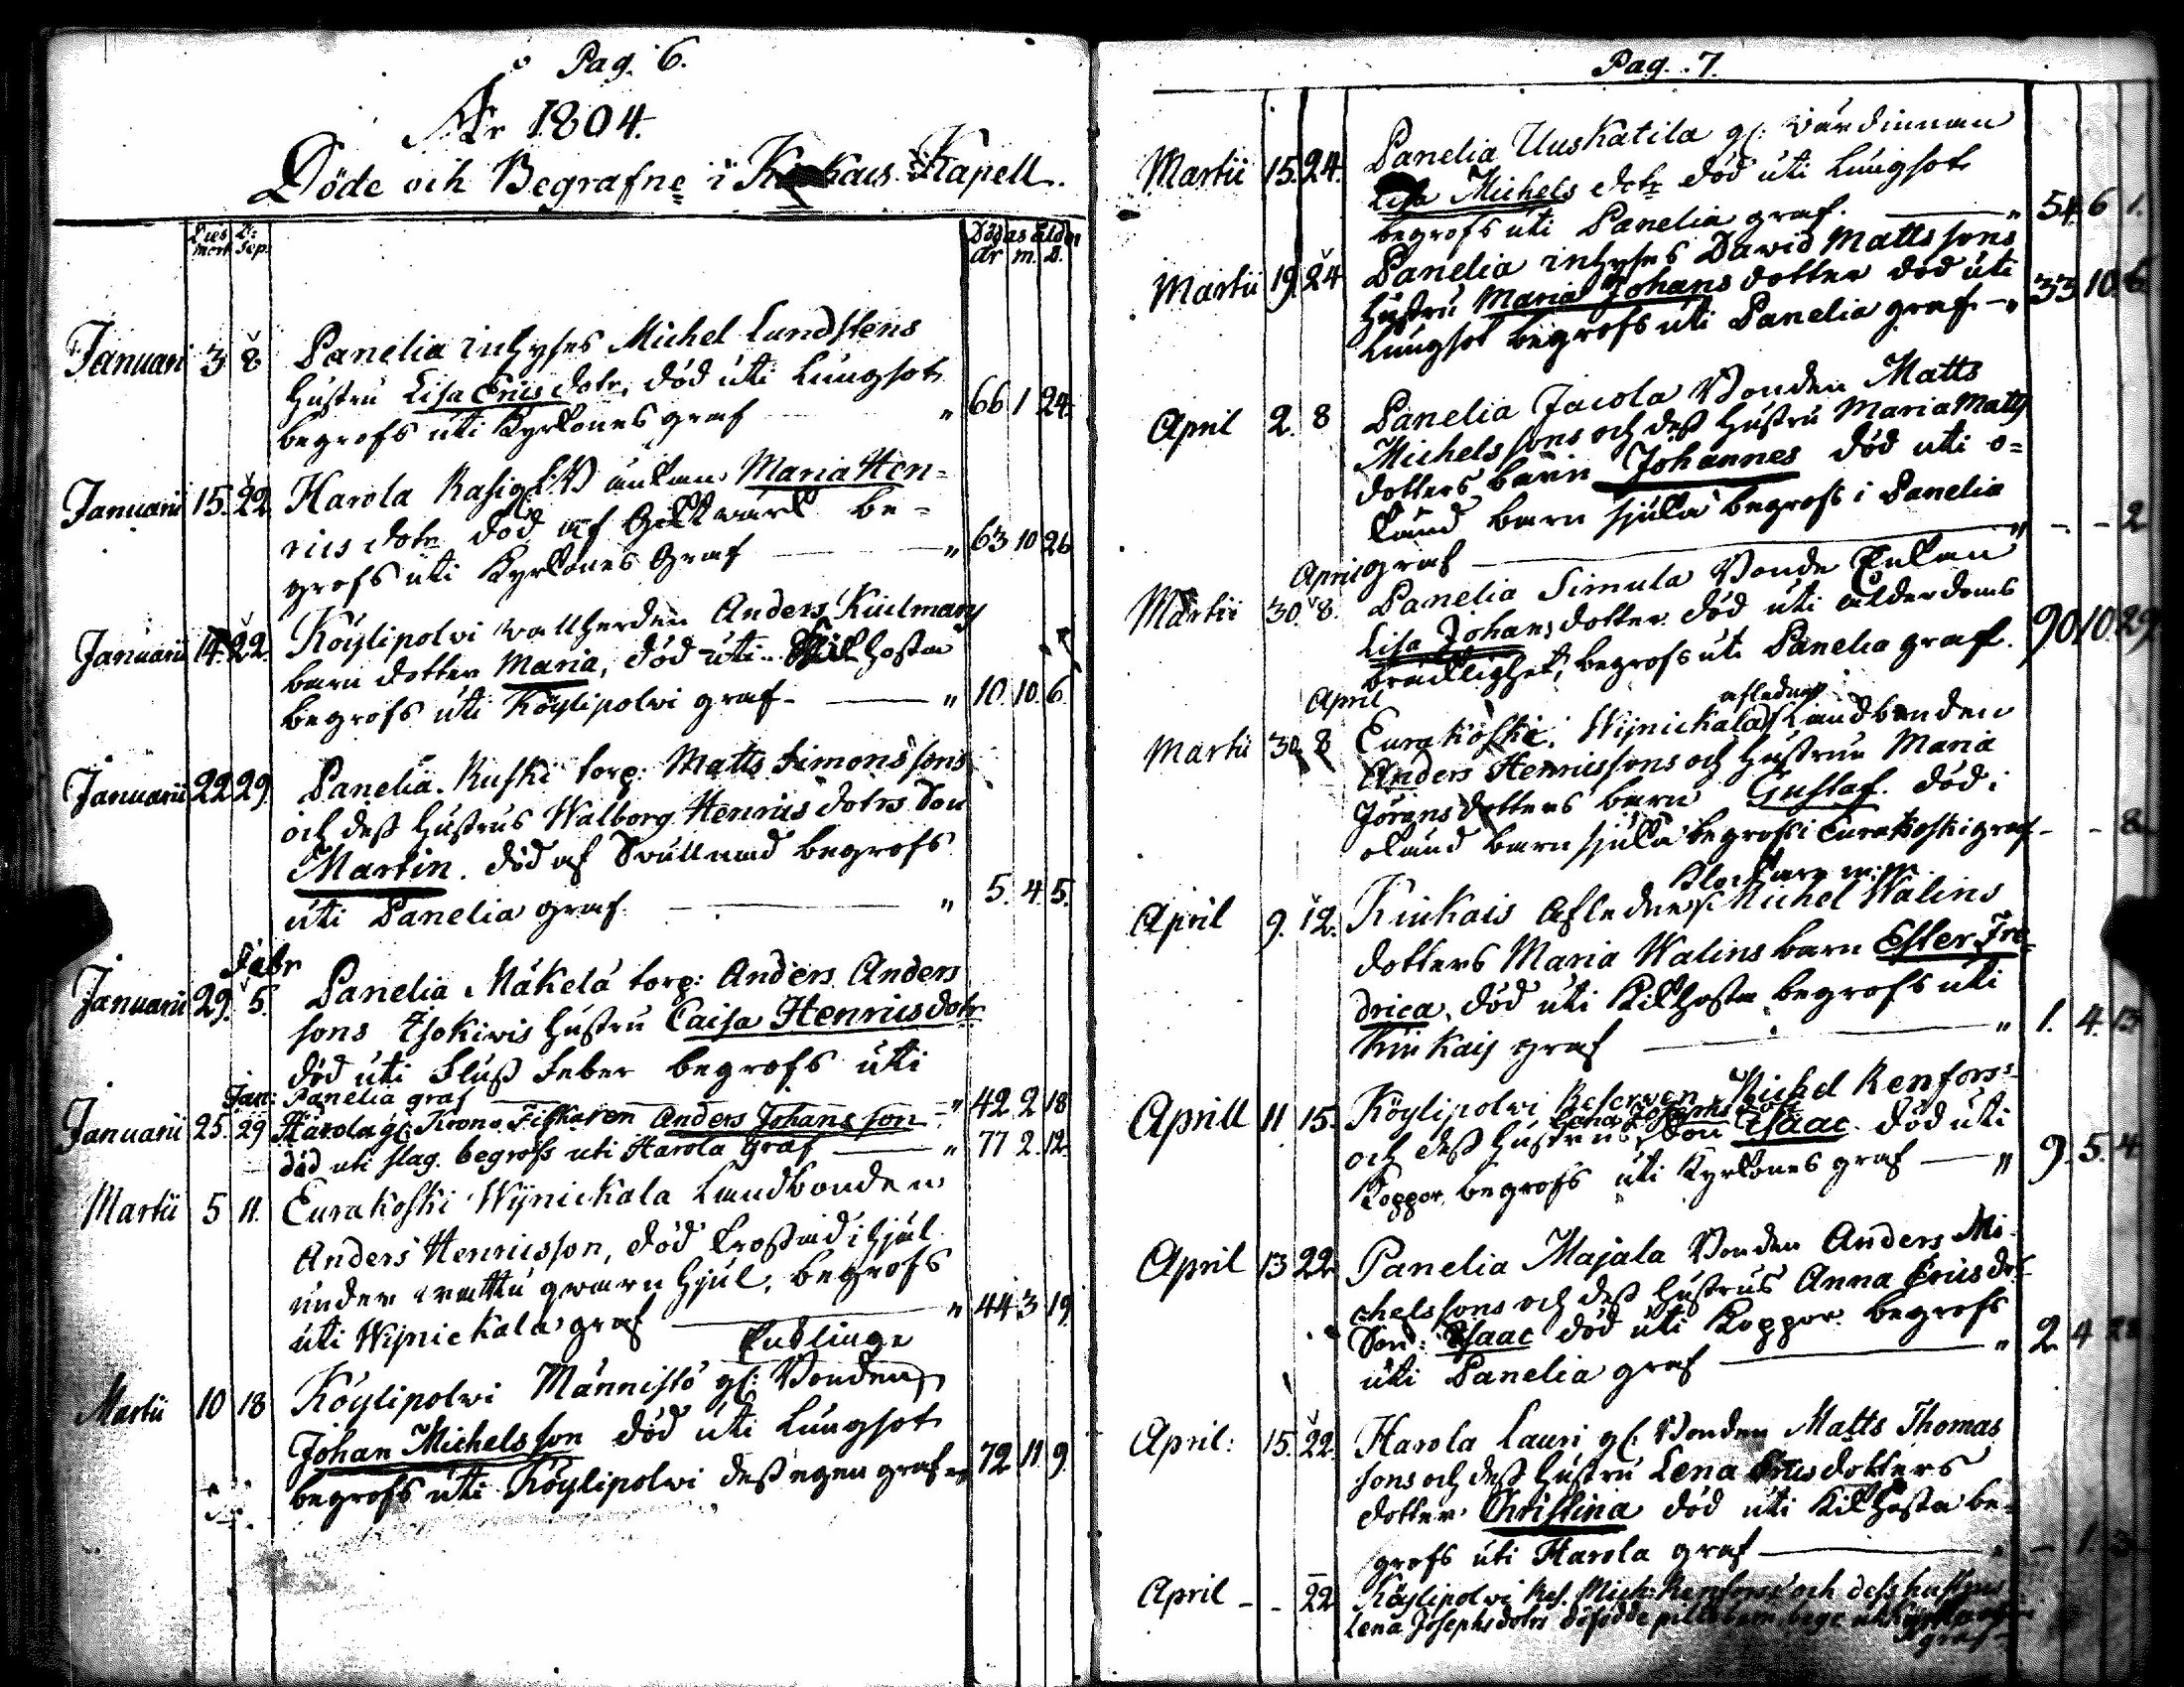 Pag. 6.
År 1804.
Döde och Begrafne i Kiukais Kapell.
Dies mort. D: Sep. Dödas ålder
år m. D.
Januari 3 8 Panelia inhyses Michel Lundstens
hustru Lisa Erics dotr. död uti Lungsot
begrofs uti Kyrkones graf " 66 1 24.
Januarii 15. 22 Harola Rasi enkan Maria Hen=
rics dotr död af Giktvärk be=
grofs uti Kyrkones Graf " 63 10 26
Januarii 14. 22. Köylipolvi vallherden Anders Kiulmans
barn dotter Maria, död uti kikhosta
begrofs uti Köylipolvi graf " 10. 10. 6.
Januarii 22 29. Panelia Ruski torp: Matts Simonssons
och dess hustrus Walborg Henrics dotrs Son
Martin. död af Svullnad begrofs
uti Panelia graf " 5. 4. 5.
Febr
Januarii 29. 5. Panelia Mäkelä torp: Anders Anders
sons Isokivis hustru Caisa Henricsdotr
död uti Fluss Feber begrofs uti
Jan: Panelia graf " 42 2 18
Januarii 25. 29 Harola gl. Krono Fiskaren Anders Johansson
död uti slag. begrofs uti Harola graf " 77 2. 12.
Martii 5 11. Eurakoski Wijnickala Landbonden
Anders Henricsson, död krossad ihjäl
under vattu qvarn hjul, begrofs
uti Wijnickala graf " 44 3 19.
Enklinge
Martii 10 18 Köylipolvi Männistö gl: Bonden
Johan Michelsson död uti Lungsot
begrofs uti Köylipolvi dess egen graf 72 11 9.
Pag. 7.
Martii 15. 24. Panelia Uuskatila gl: värdinnan
Lisa Michels dotr död uti Lungsot
begrofs uti Panelia graf. " 54. 6 1.
Martii 19. 24 Panelia inhyses David Mattssons
hustru Maria Johans dotter död uti
Lungsot begrofs uti Panelia graf " 33 10 6
April 2. 8 Panelia Jacola Bonden Matts
Michelssons och dess hustru Maria Matts
dotters barn Johannes död uti o=
känd barn sjuka begrofs i Panelia
graf " - - 2
April
Martii 30. 8. Panelia Simula Bonde Enkan
Lisa Johans dotter död uti ålderdoms
bräcklighet, begrofs uti Panelia graf. 90 10 29
April afledne
Martii 30 8 Eurakoski Wijnickala Landbonden
Anders Henricssons och hustrun Maria
Jörans dotters barn Gustaf. död i
okänd barn sjuka begrofs i Eurakoski graf - - 8
Klockare m:m
April 9. 12. Kiukais Afledne Michel Walins
dotters Maria Walins barn Ester Fre
drica, död uti Kikhosta begrofs uti
Kiukais graf " 1. 4. 13
Aprill 11 15. Köylipolvi Reserven Michel Renfors:
Lena Josephs dotr
och dess hustrus Son Isaac. död uti
Koppor, begrofs uti Kyrkones graf " 9. 5. 4
April 13 22 Panelia Majala Bonden Anders Mi
chelssons och dess hustrus Anna Erics dr
Son: Isaac död uti Koppor begrofs
uti Panelia graf " 2 4 28
April: 15. 22. Harola Lauri gl: Bonden Matts Thomas
sons och dess hustru Lena Erics dotters
dotter Christina död uti Kikhosta be-
grofs uti Harola graf " - 1. 3
April - - 22 Köylipolvi Res. Mich: Renfors och dess hustrus
Lena Josephsdotrs dödfödde
graf